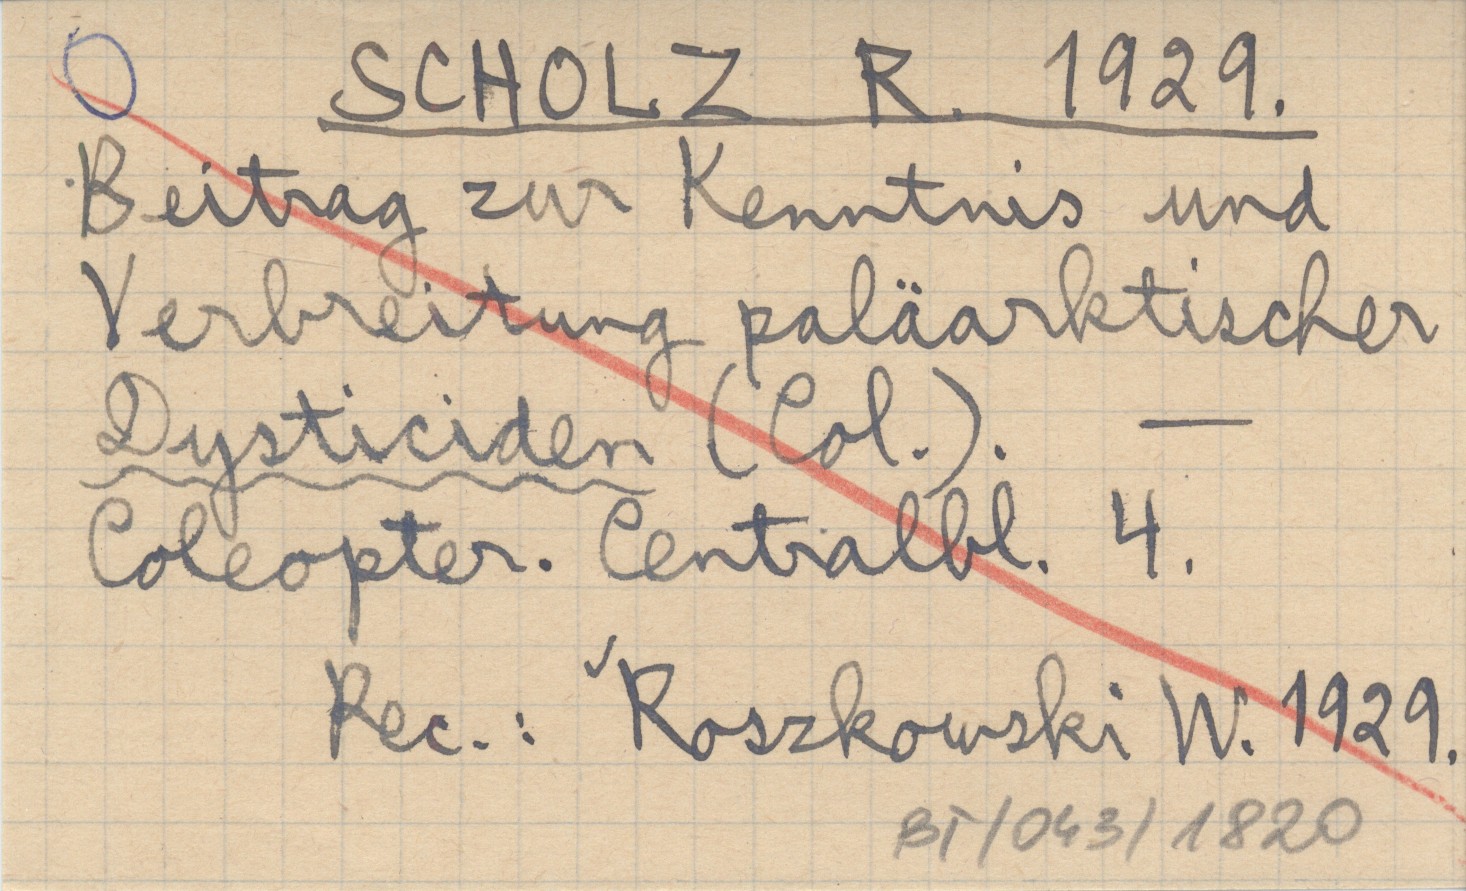 SCHOLZ R. 1929.
Beitrag zur Kenntnis und
Verbreitung paläarktischer
Dysticiden (Col.). —
Coleopter. Centralbl. 4.
Rec.: Roszkowski W. 1929.
BT/043/1820